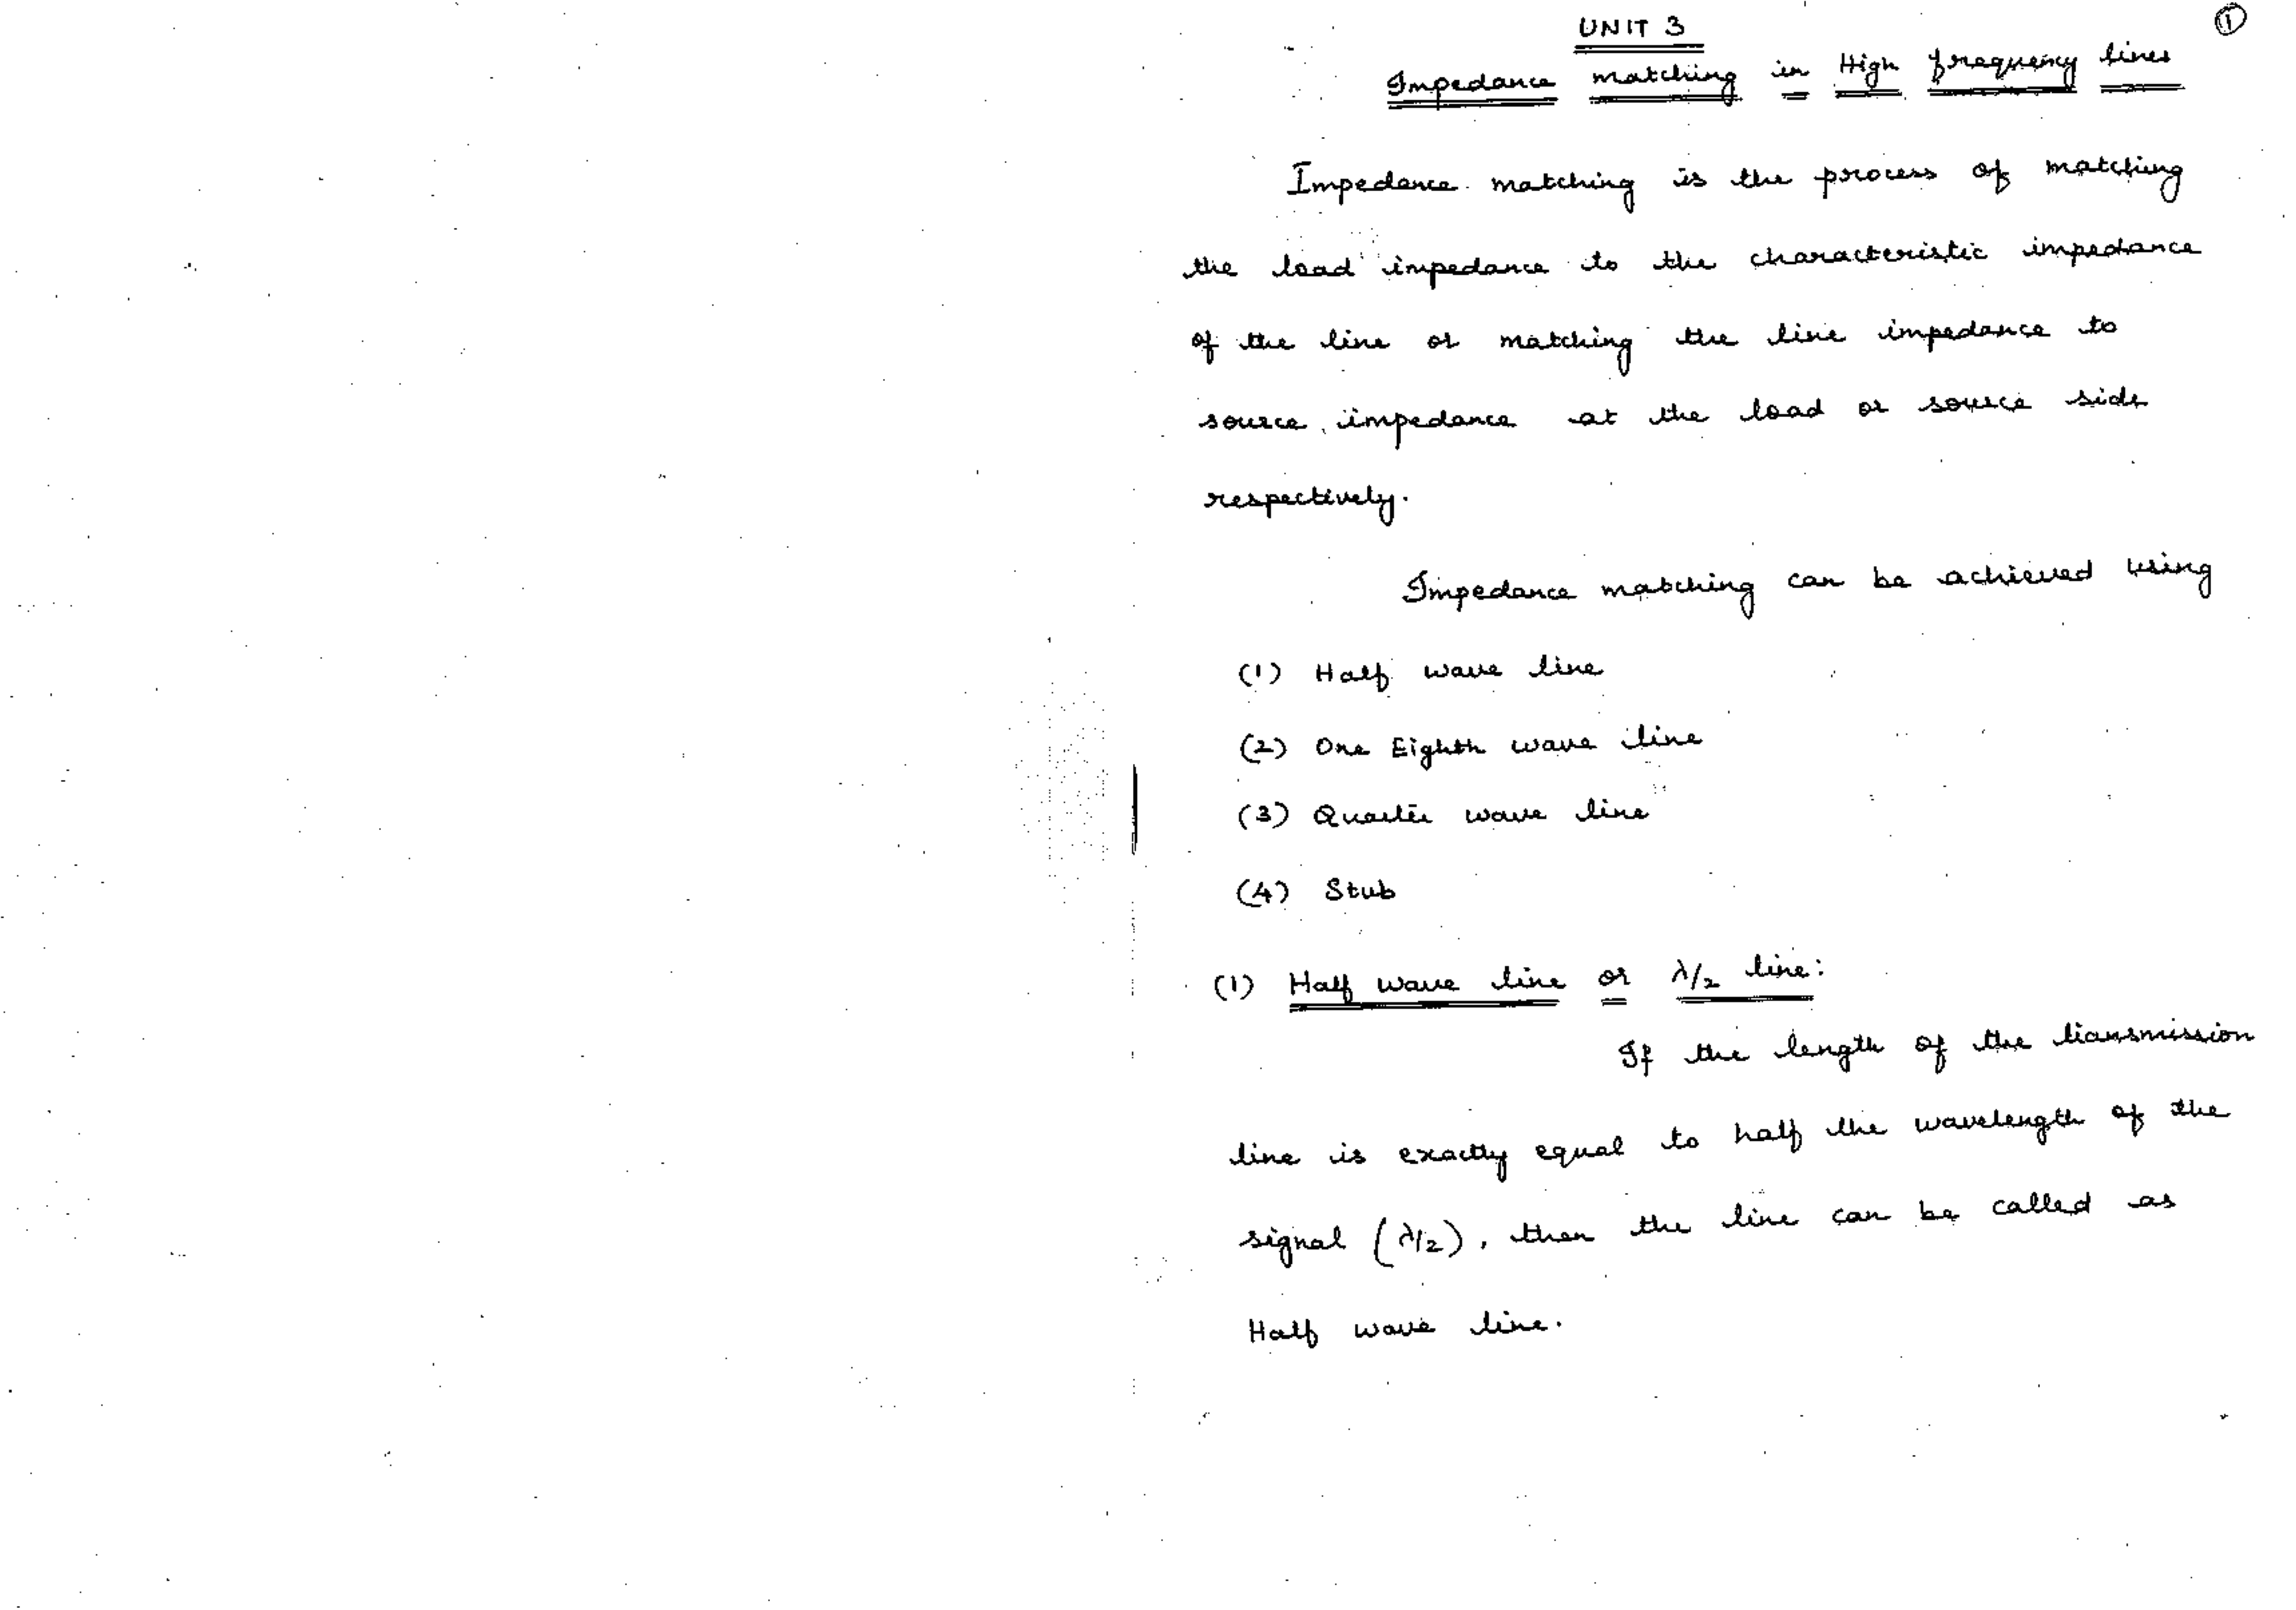 UNIT 3
①
Impedance matching in High frequency lines
Impedance matching is the process of matching
the load impedance to the characteristic impedance
of the line or matching the line impedance to
source impedance at the load or source side
respectively.
Impedance matching can be achieved using
(1) Half wave line
(2) One Eighth wave line
(3) Quarter wave line
(4) Stub
(1) Half wave line or λ/2 line:
If the length of the transmission
line is exactly equal to half the wavelength of the
signal (λ/2), then the line can be called as
Half wave line.